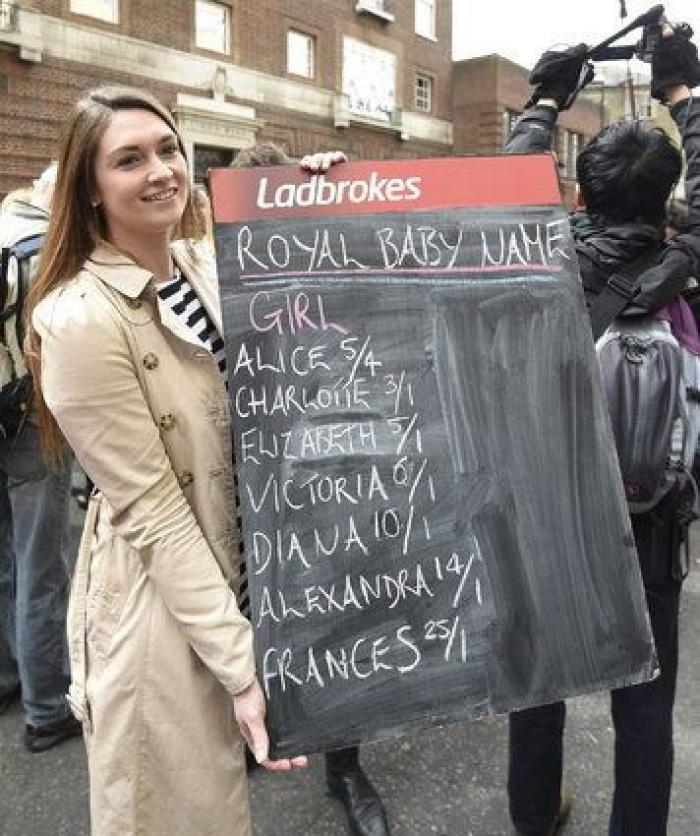 Ladbrokes
ROYAL BABY NAME
GIRL
ALICE 5/4
CHARLOTTE 3/1
ELIZABETH 5/1
VICTORIA 6/1
DIANA 10/1
ALEXANDRA 14/1
FRANCES 25/1